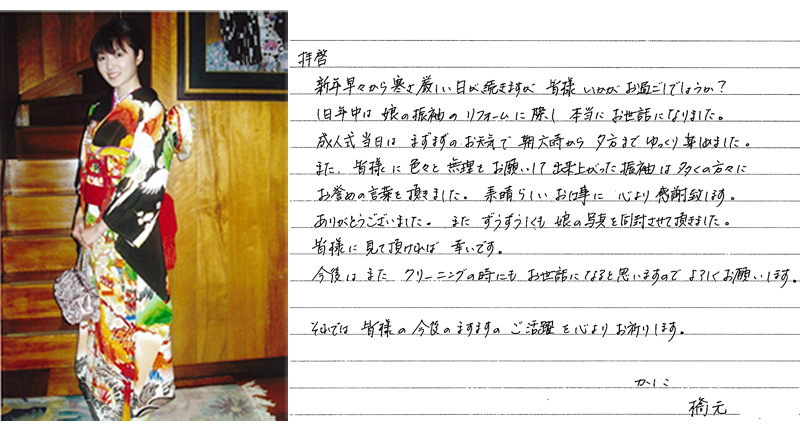 拝啓
新年早々から寒さ厳しい日が続きますが 皆様 いかがお過ごしでしょうか?
旧年中は 娘の振袖の リフォームに際し 本当に お世話になりました。
成人式当日は まずまずのお天気で 朝六時から 夕方まで ゆっくり楽しめました。
また、皆様に 色々と 無理を お願いして 出来上がった 振袖は 多くの方々に
お誉めの言葉を頂きました。素晴らしい お仕事に 心より 感謝致します。
ありがとうございました。また ずうずうしくも 娘の写真を同封させて頂きました。
皆様に見て頂ければ 幸いです。
今後は また クリーニングの時にも お世話になると思いますので よろしくお願いします。
それでは 皆様の今後のますますの ご活躍を心より お祈りします。
かしこ
橋元